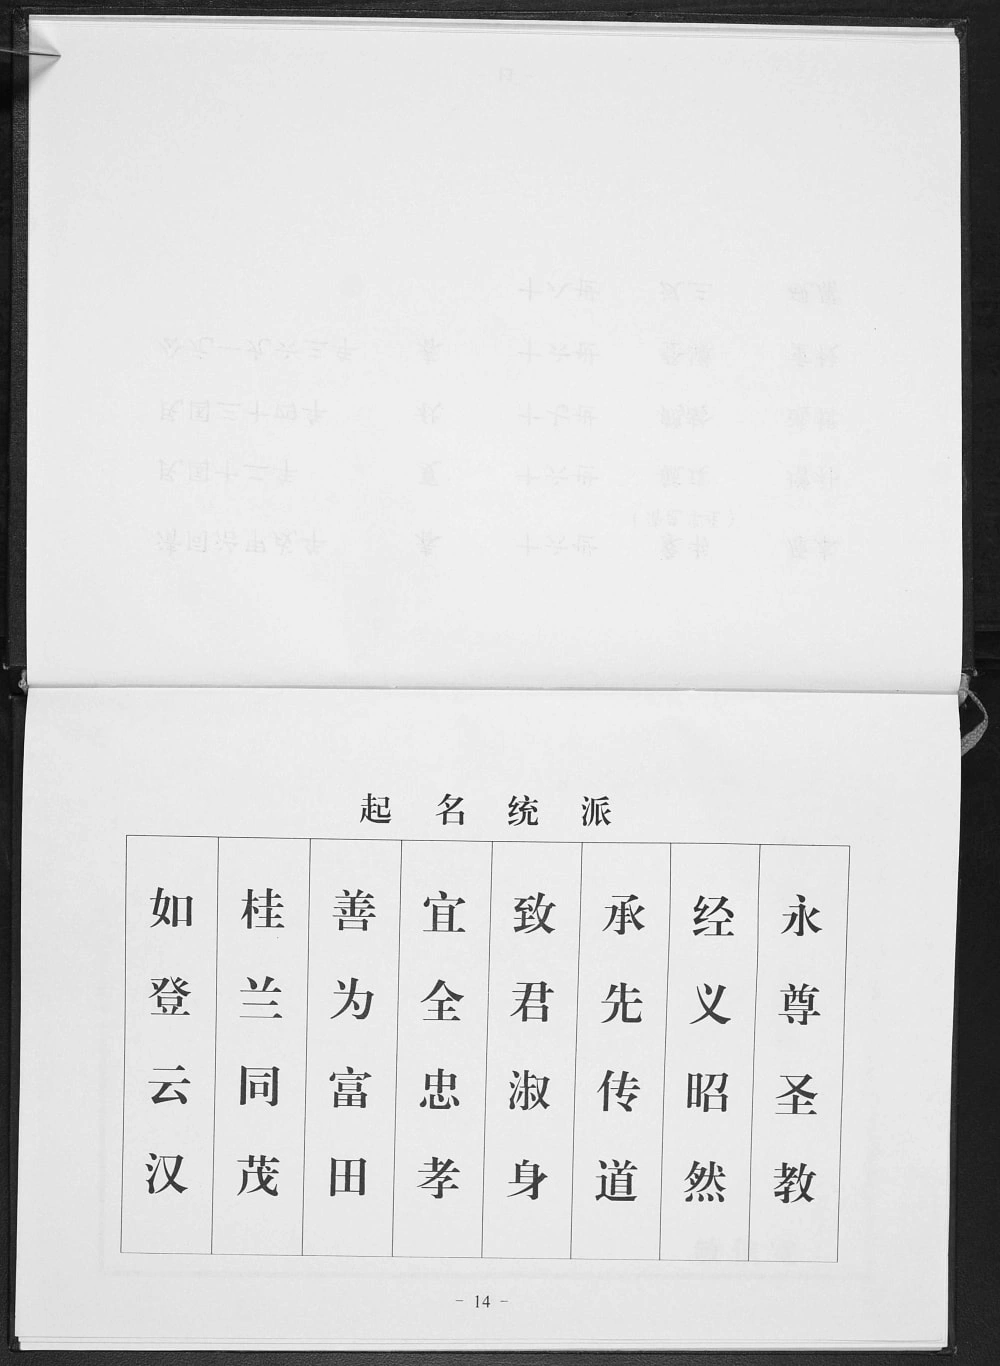 起名统派
永尊圣教
经义昭然
承先传道
致君淑身
宜全忠孝
善为富田
桂兰同茂
如登云汉
- 14 -